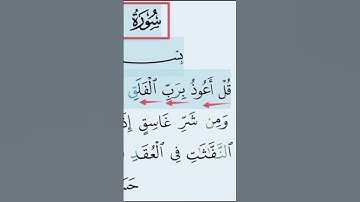 سُورَةُ
قُلْ أَعُوذُ بِرَبِّ ٱلْفَلَقِ
وَمِن شَرِّ غَاسِقٍ إِذَ
ٱلنَّفَّٰثَٰتِ فِى ٱلْعُقَدِ